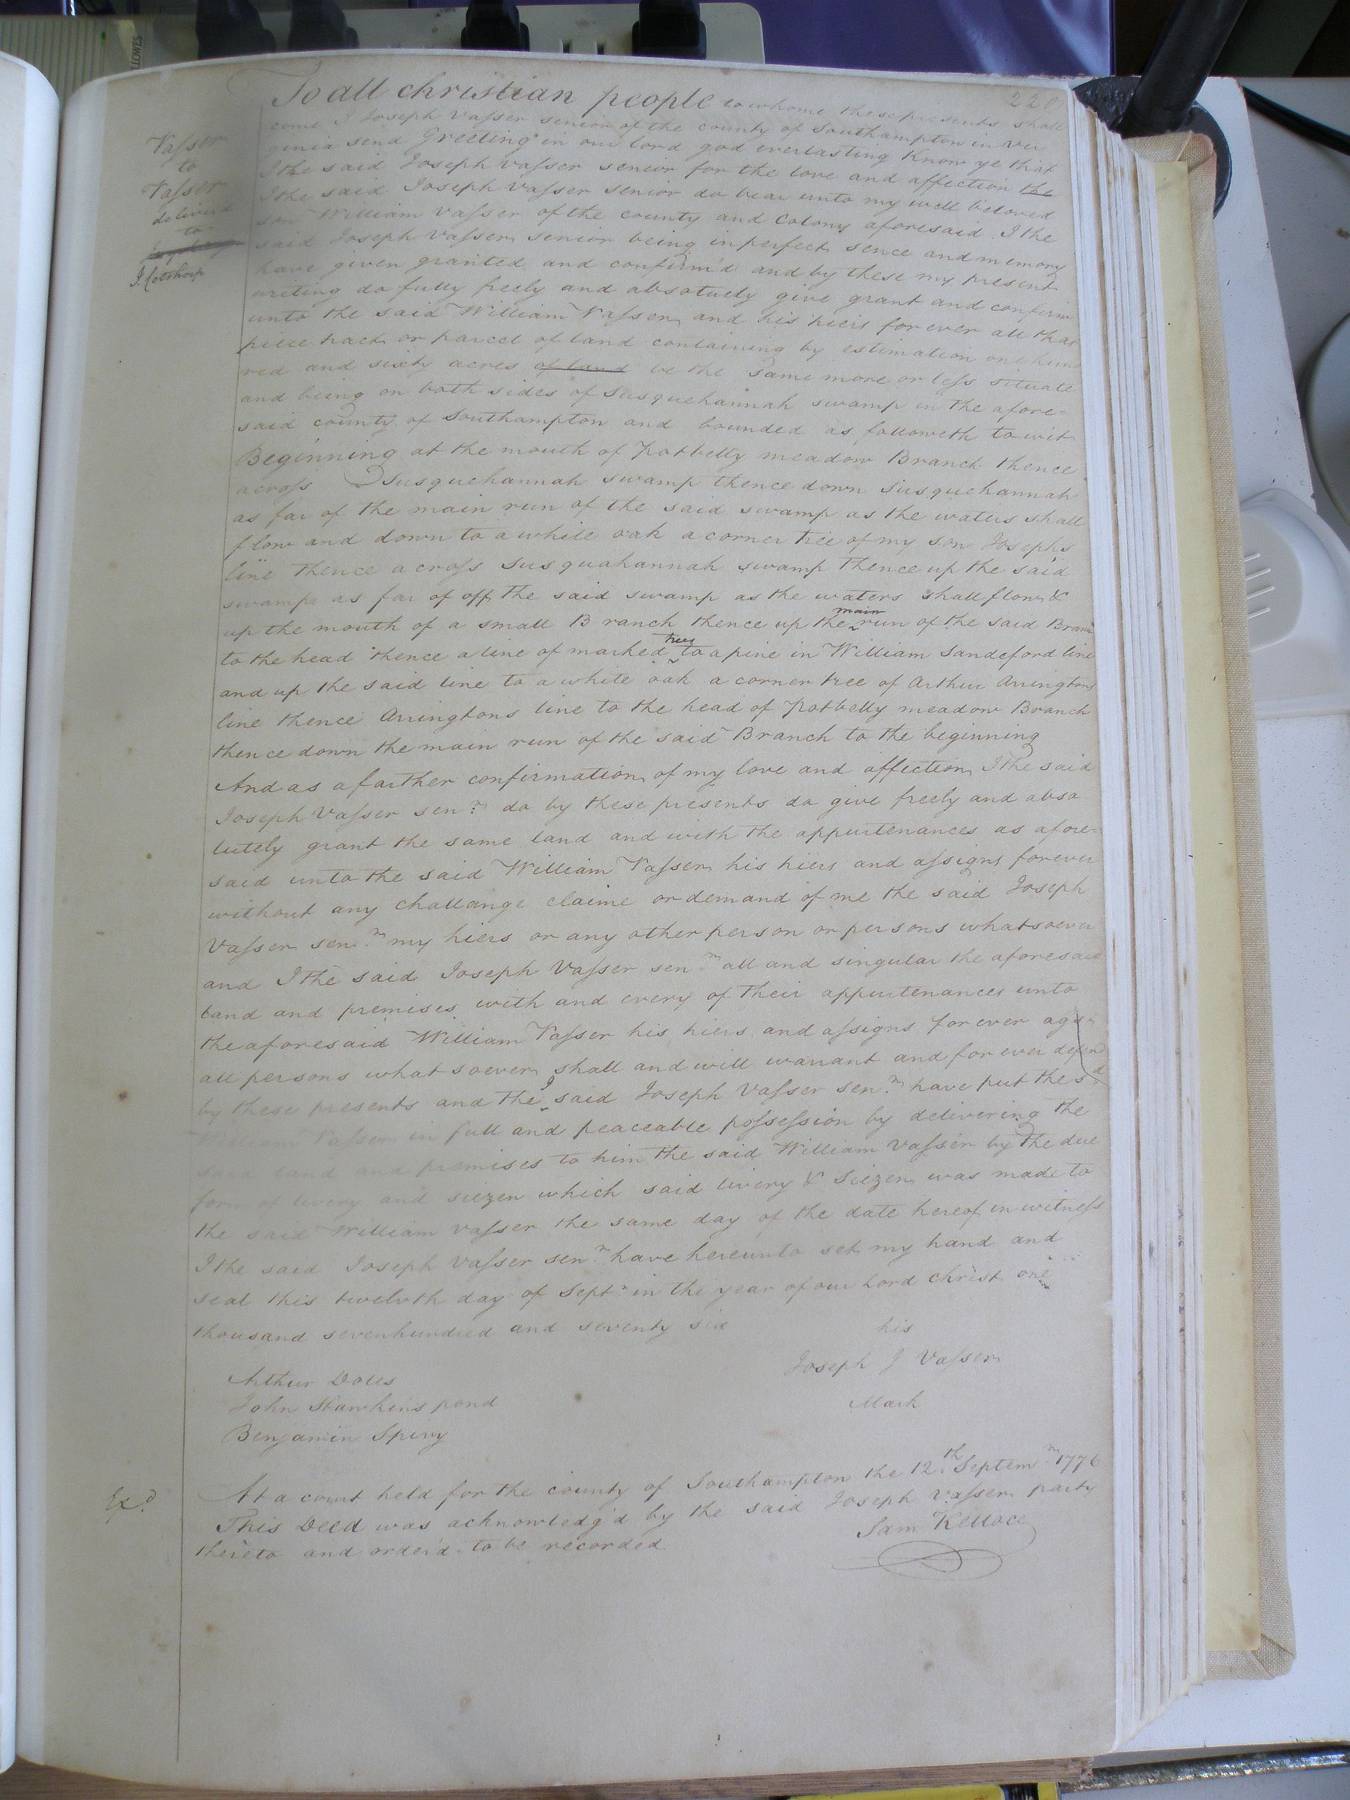 220
To all christian people to whome these presents shall
come I Joseph Vasser senior of the county of Southampton in Vir
ginia send Greeting in our lord god everlasting Know ye that
I the said Joseph Vasser senior for the love and affection the
I the said Joseph Vasser senior do bear unto my well beloved
son William Vasser of the county and Colony aforesaid I the
said Joseph Vasser senior being in perfect sence and memory
have given granted and confirm'd and by these my present
writing do fully freely and absolutely give grant and confirm
unto the said William Vasser and his hiers for ever all that
piece tract or parcel of land containing by estimation one hund
red and sixty acres of land be the same more or less situate
and being on both sides of Susquehannah swamp in the afore-
said county of Southampton and bounded as followeth to wit
Beginning at the mouth of Potbelly meadow Branch thence
across Susquehannah swamp thence down Susquehannah
as far of the main run of the said swamp as the waters shall
flow and down to a white oak a corner tree of my son Josephs
line thence across Susquahannah swamp thence up the said
swamp as far of off the said swamp as the waters shall flow &
up the mouth of a small Branch thence up the main run of the said Bran
to the head thence a line of marked trees to a pine in William Sandeford line
and up the said line to a white oak a corner tree of Arthur Arringtons
line thence Arringtons line to the head of Potbelly meadow Branch
thence down the main run of the said Branch to the beginning
And as a farther confirmation of my love and affection I the said
Joseph Vasser senr do by these presents do give freely and abso
lutely grant the same land and with the appurtenances as afore-
said unto the said William Vasser his hiers and assigns forever
without any challange claime or demand of me the said Joseph
Vasser senr my hiers or any other person or persons whatsoever
and I the said Joseph Vasser senr all and singular the aforesaid
land and premises with and every of their appurtenances unto
the aforesaid William Vasser his hiers and assigns for ever agst
all persons whatsoever shall and will warrant and for ever defend
by these presents and the I said Joseph Vasser senr have put the sd
William Vasser in full and peaceable possession by delivering the
said land and premises to him the said William Vasser by the due
form of livery and siezen which said livery & Siezen was made to
the said William Vasser the same day of the date hereof in witness
I the said Joseph Vasser senr have hereunto set my hand and
seal this twelvth day of Sept in the year of our Lord christ one
thousand sevenhundred and seventy six
his
Joseph J Vasser
Mark
Arthur Doles
John Hawkins pond
Benjamin Spivy
At a court held for the county of Southampton the 12th Septemr 1776
This Deed was acknowledg'd by the said Joseph Vasser party
thereto and order'd to be recorded
Sam Kelloce
Vasser
to
Vasser
deliverd
to
Exd